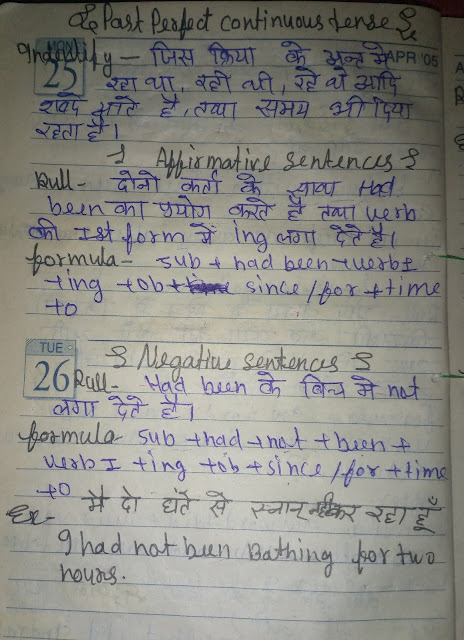 Past Perfect continuous tense
Indentify - जिस क्रिया के अन्त में
MON
25
APR '05
रहा था, रही थी, रहे थे आदि
शब्द आते है, तथा समय भी दिया
रहता है।
Affirmative sentences
Rull - दोनो कर्ता के साथ Had
been का प्रयोग करते है तथा verb
की Ist form में ing लगा देते है।
formula - sub + had been + verb I
+ing +ob+ since/for +time
+o
TUE
26
Negative sentences
Rull- Had been के बिच मे not
लगा देते है।
formula- sub +had +not +been +
verb I +ing +ob +since /for +time
+o
Ex- मै दो घंटे से स्नान नहीं कर रहा हूँ
I had not been Bathing for two
hours.